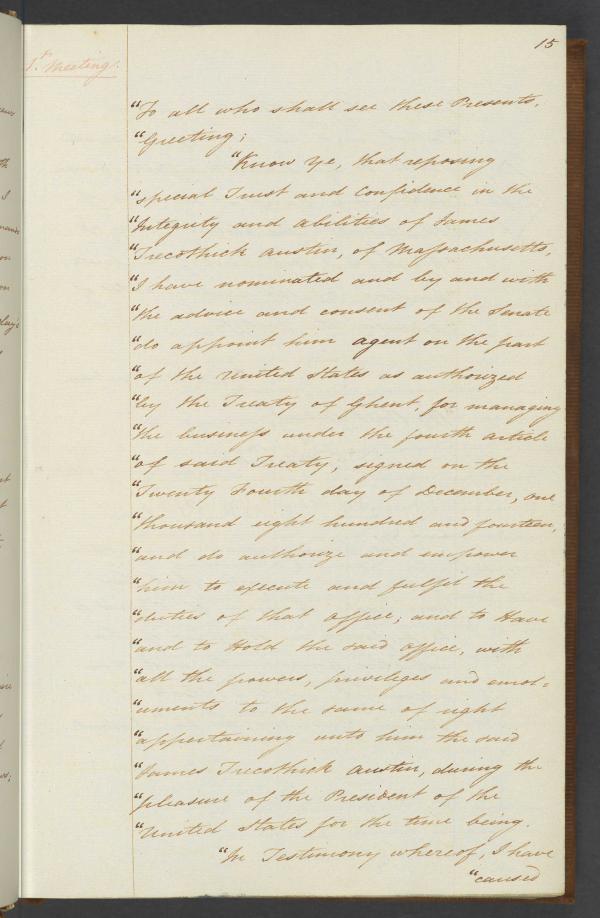 15
1st Meeting.
"To all who shall see these Presents,
"Greeting;
"Know Ye, that reposing
"special Trust and Confidence in the
"Integrity and abilities of James
"Trecothick Austin, of Massachusetts,
"I have nominated and by and with
"the advice and consent of the Senate
"do appoint him agent on the part
"of the United States as authorized
"by the Treaty of Ghent, for managing
"the business under the fourth article
"of said Treaty, signed on the
"Twenty Fourth day of December, one
"thousand eight hundred and fourteen,
"and do authorize and empower
"him to execute and fulfil the
"duties of that office; and to Have
"and to Hold the said office, with
"all the powers, privileges and emol-
"uments to the same of right
"appertaining unto him the said
"James Trecothick Austin, during the
"pleasure of the President of the
"United States for the time being.
"In Testimony whereof, I have
"caused